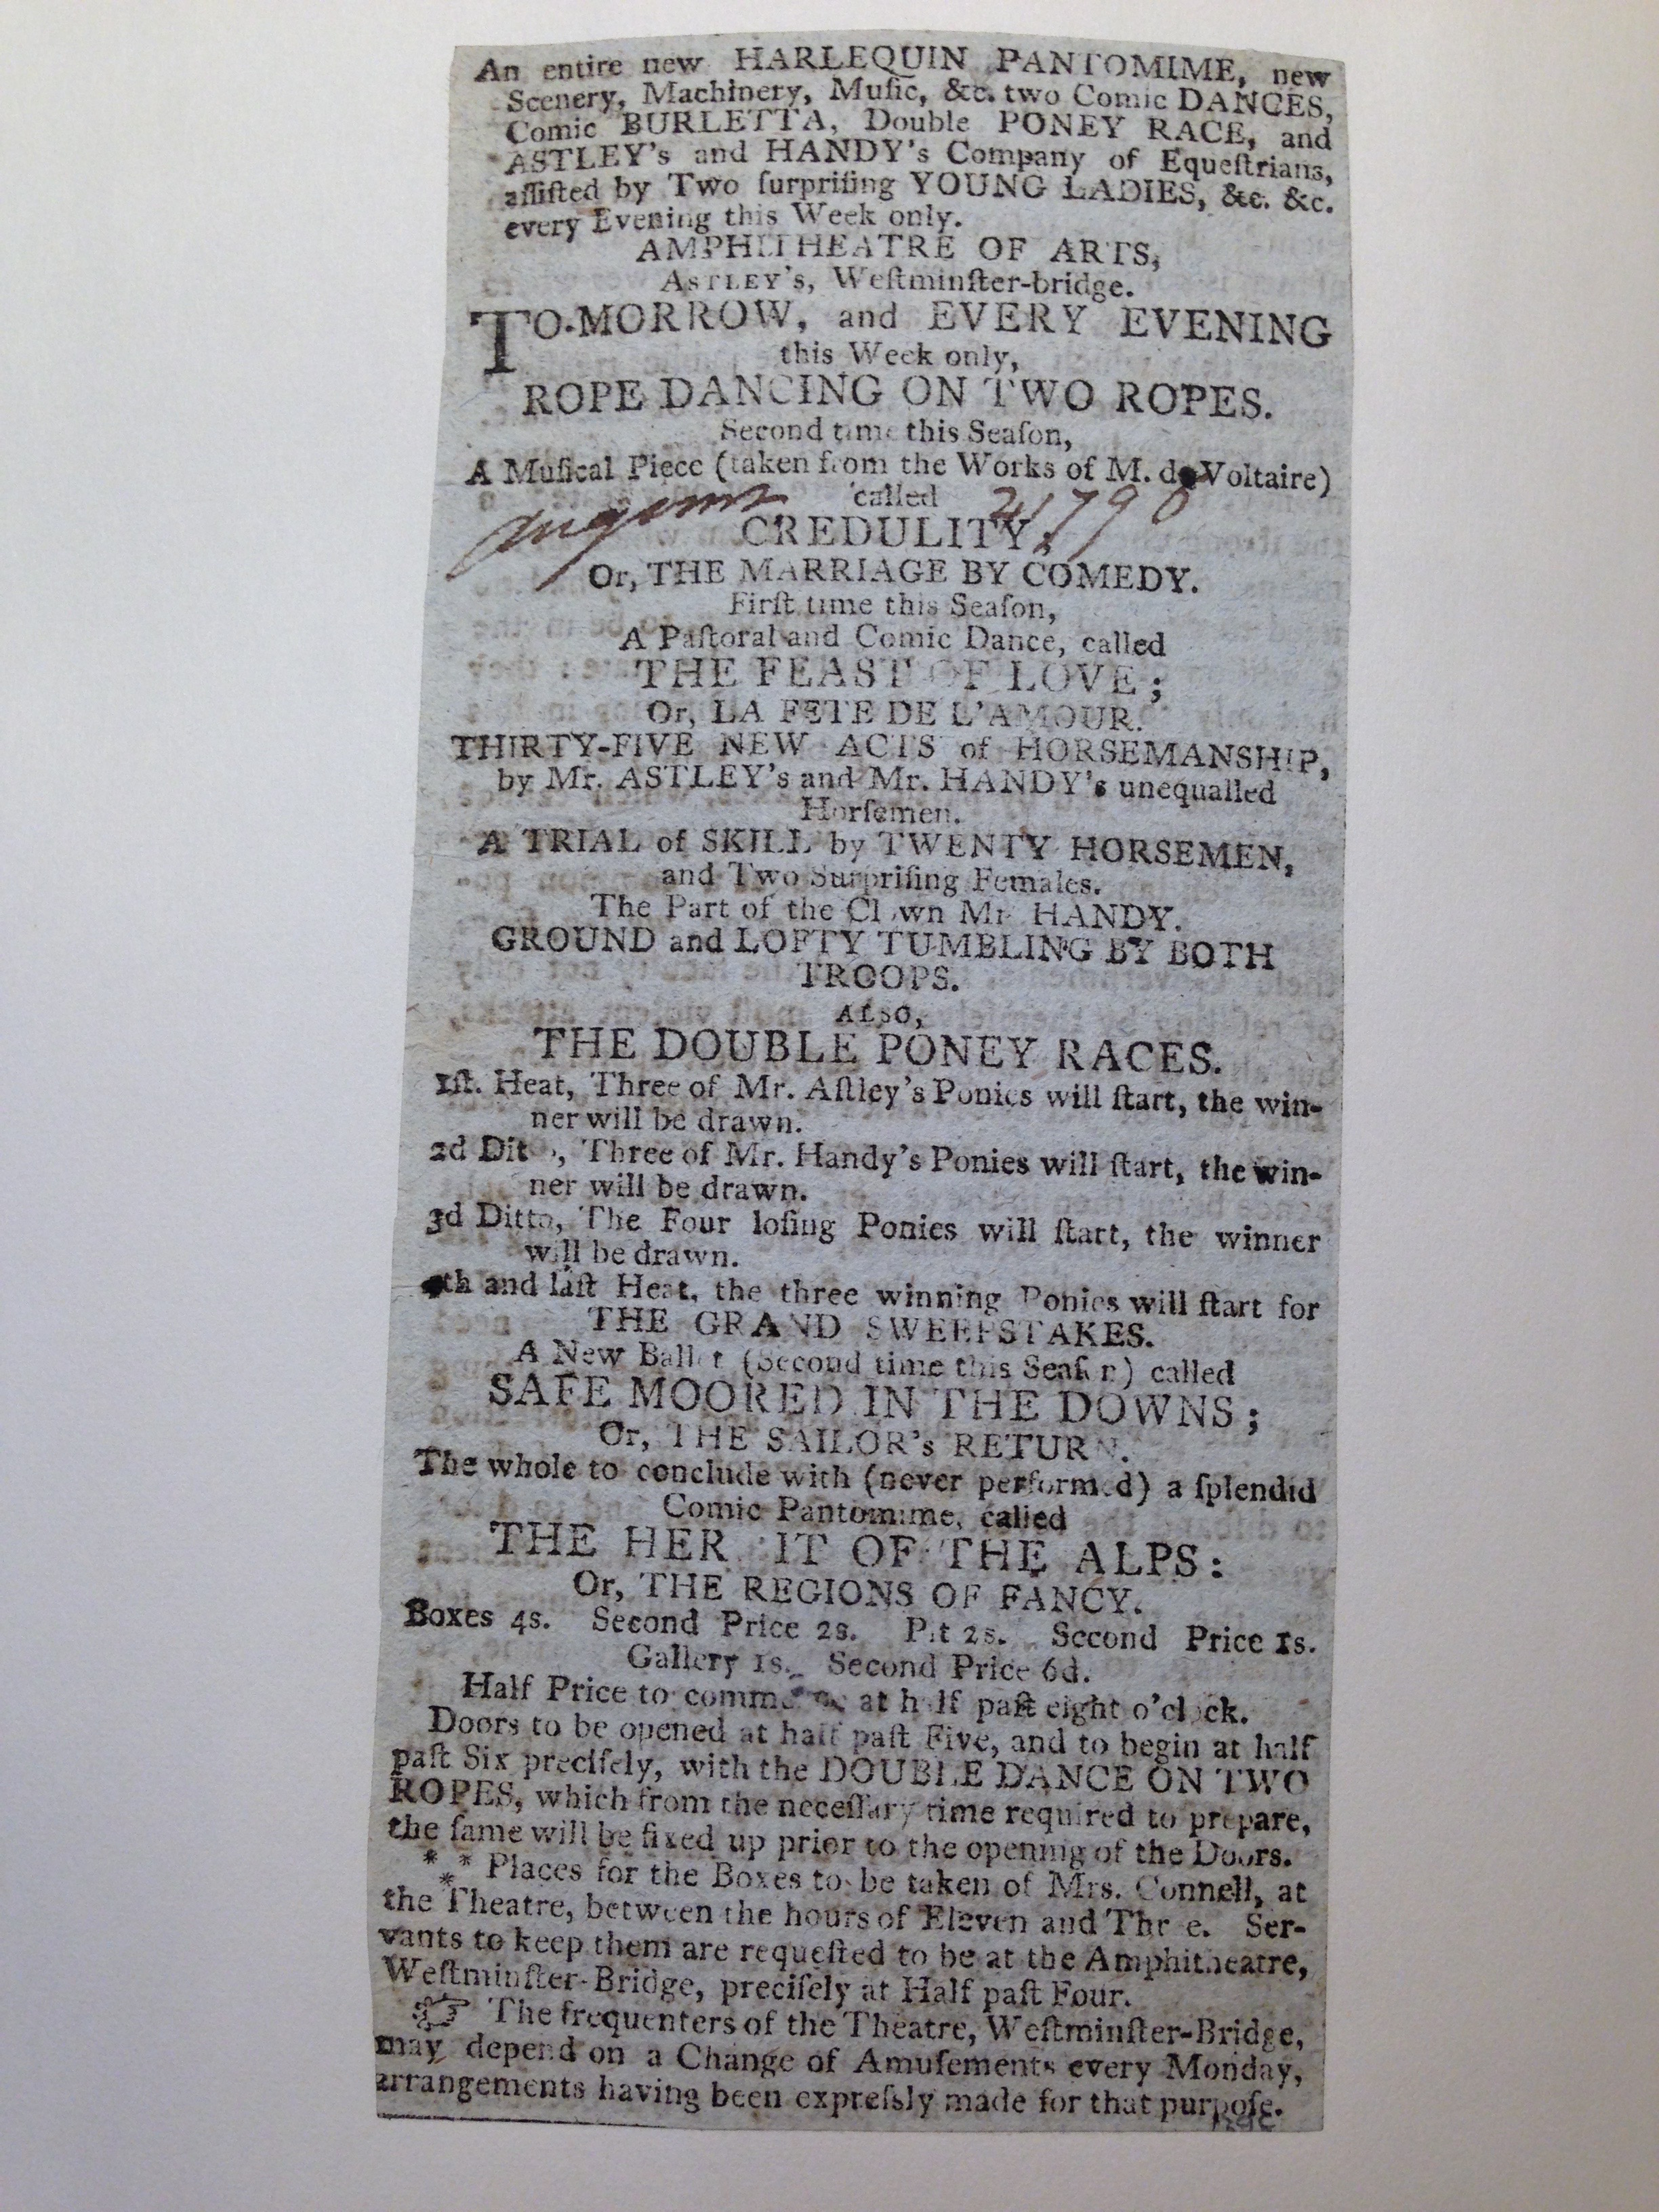 An entire new HARLEQUIN PANTOMIME, new
Scenery, Machinery, Muſic, &c. two Comic DANCES,
Comic BURLETTA, Double PONEY RACE, and
ASTLEY's and HANDY's Company of Equeſtrians,
aſſiſted by Two ſurpriſing YOUNG LADIES, &c. &c.
every Evening this Week only.
AMPHITHEATRE OF ARTS,
ASTLEY's, Weſtminſter-bridge.
TO-MORROW, and EVERY EVENING
this Week only,
ROPE DANCING ON TWO ROPES.
Second time this Seaſon,
A Muſical Piece (taken from the Works of M. de Voltaire)
called
1790
CREDULITY;
Or, THE MARRIAGE BY COMEDY.
Firſt time this Seaſon,
A Paſtoral and Comic Dance, called
THE FEAST OF LOVE;
Or, LA FETE DE L'AMOUR.
THIRTY-FIVE NEW ACTS of HORSEMANSHIP,
by Mr. ASTLEY's and Mr. HANDY's unequalled
Horſemen.
A TRIAL of SKILL by TWENTY HORSEMEN,
and Two Surpriſing Females.
The Part of the Clown Mr. HANDY.
GROUND and LOFTY TUMBLING BY BOTH
TROOPS.
ALSO,
THE DOUBLE PONEY RACES.
1ſt. Heat, Three of Mr. Aſtley's Ponies will ſtart, the win-
ner will be drawn.
2d Ditto, Three of Mr. Handy's Ponies will ſtart, the win-
ner will be drawn.
3d Ditto, The Four loſing Ponies will ſtart, the winner
will be drawn.
4th and laſt Heat, the three winning Ponies will ſtart for
THE GRAND SWEEPSTAKES.
A New Ballet (Second time this Seaſon) called
SAFE MOORED IN THE DOWNS;
Or, THE SAILOR's RETURN.
The whole to conclude with (never performed) a ſplendid
Comic Pantomime, called
THE HERMIT OF THE ALPS:
Or, THE REGIONS OF FANCY.
Boxes 4s. Second Price 2s. Pit 2s. Second Price 1s.
Gallery 1s. Second Price 6d.
Half Price to commence at half paſt eight o'clock.
Doors to be opened at half paſt Five, and to begin at half
paſt Six preciſely, with the DOUBLE DANCE ON TWO
ROPES, which from the neceſſary time required to prepare,
the ſame will be fixed up prior to the opening of the Doors.
*** Places for the Boxes to be taken of Mrs. Connell, at
the Theatre, between the hours of Eleven and Three. Ser-
vants to keep them are requeſted to be at the Amphitheatre,
Weſtminſter-Bridge, preciſely at Half paſt Four.
☞ The frequenters of the Theatre, Weſtminſter-Bridge,
may depend on a Change of Amuſements every Monday,
arrangements having been expreſsly made for that purpoſe.